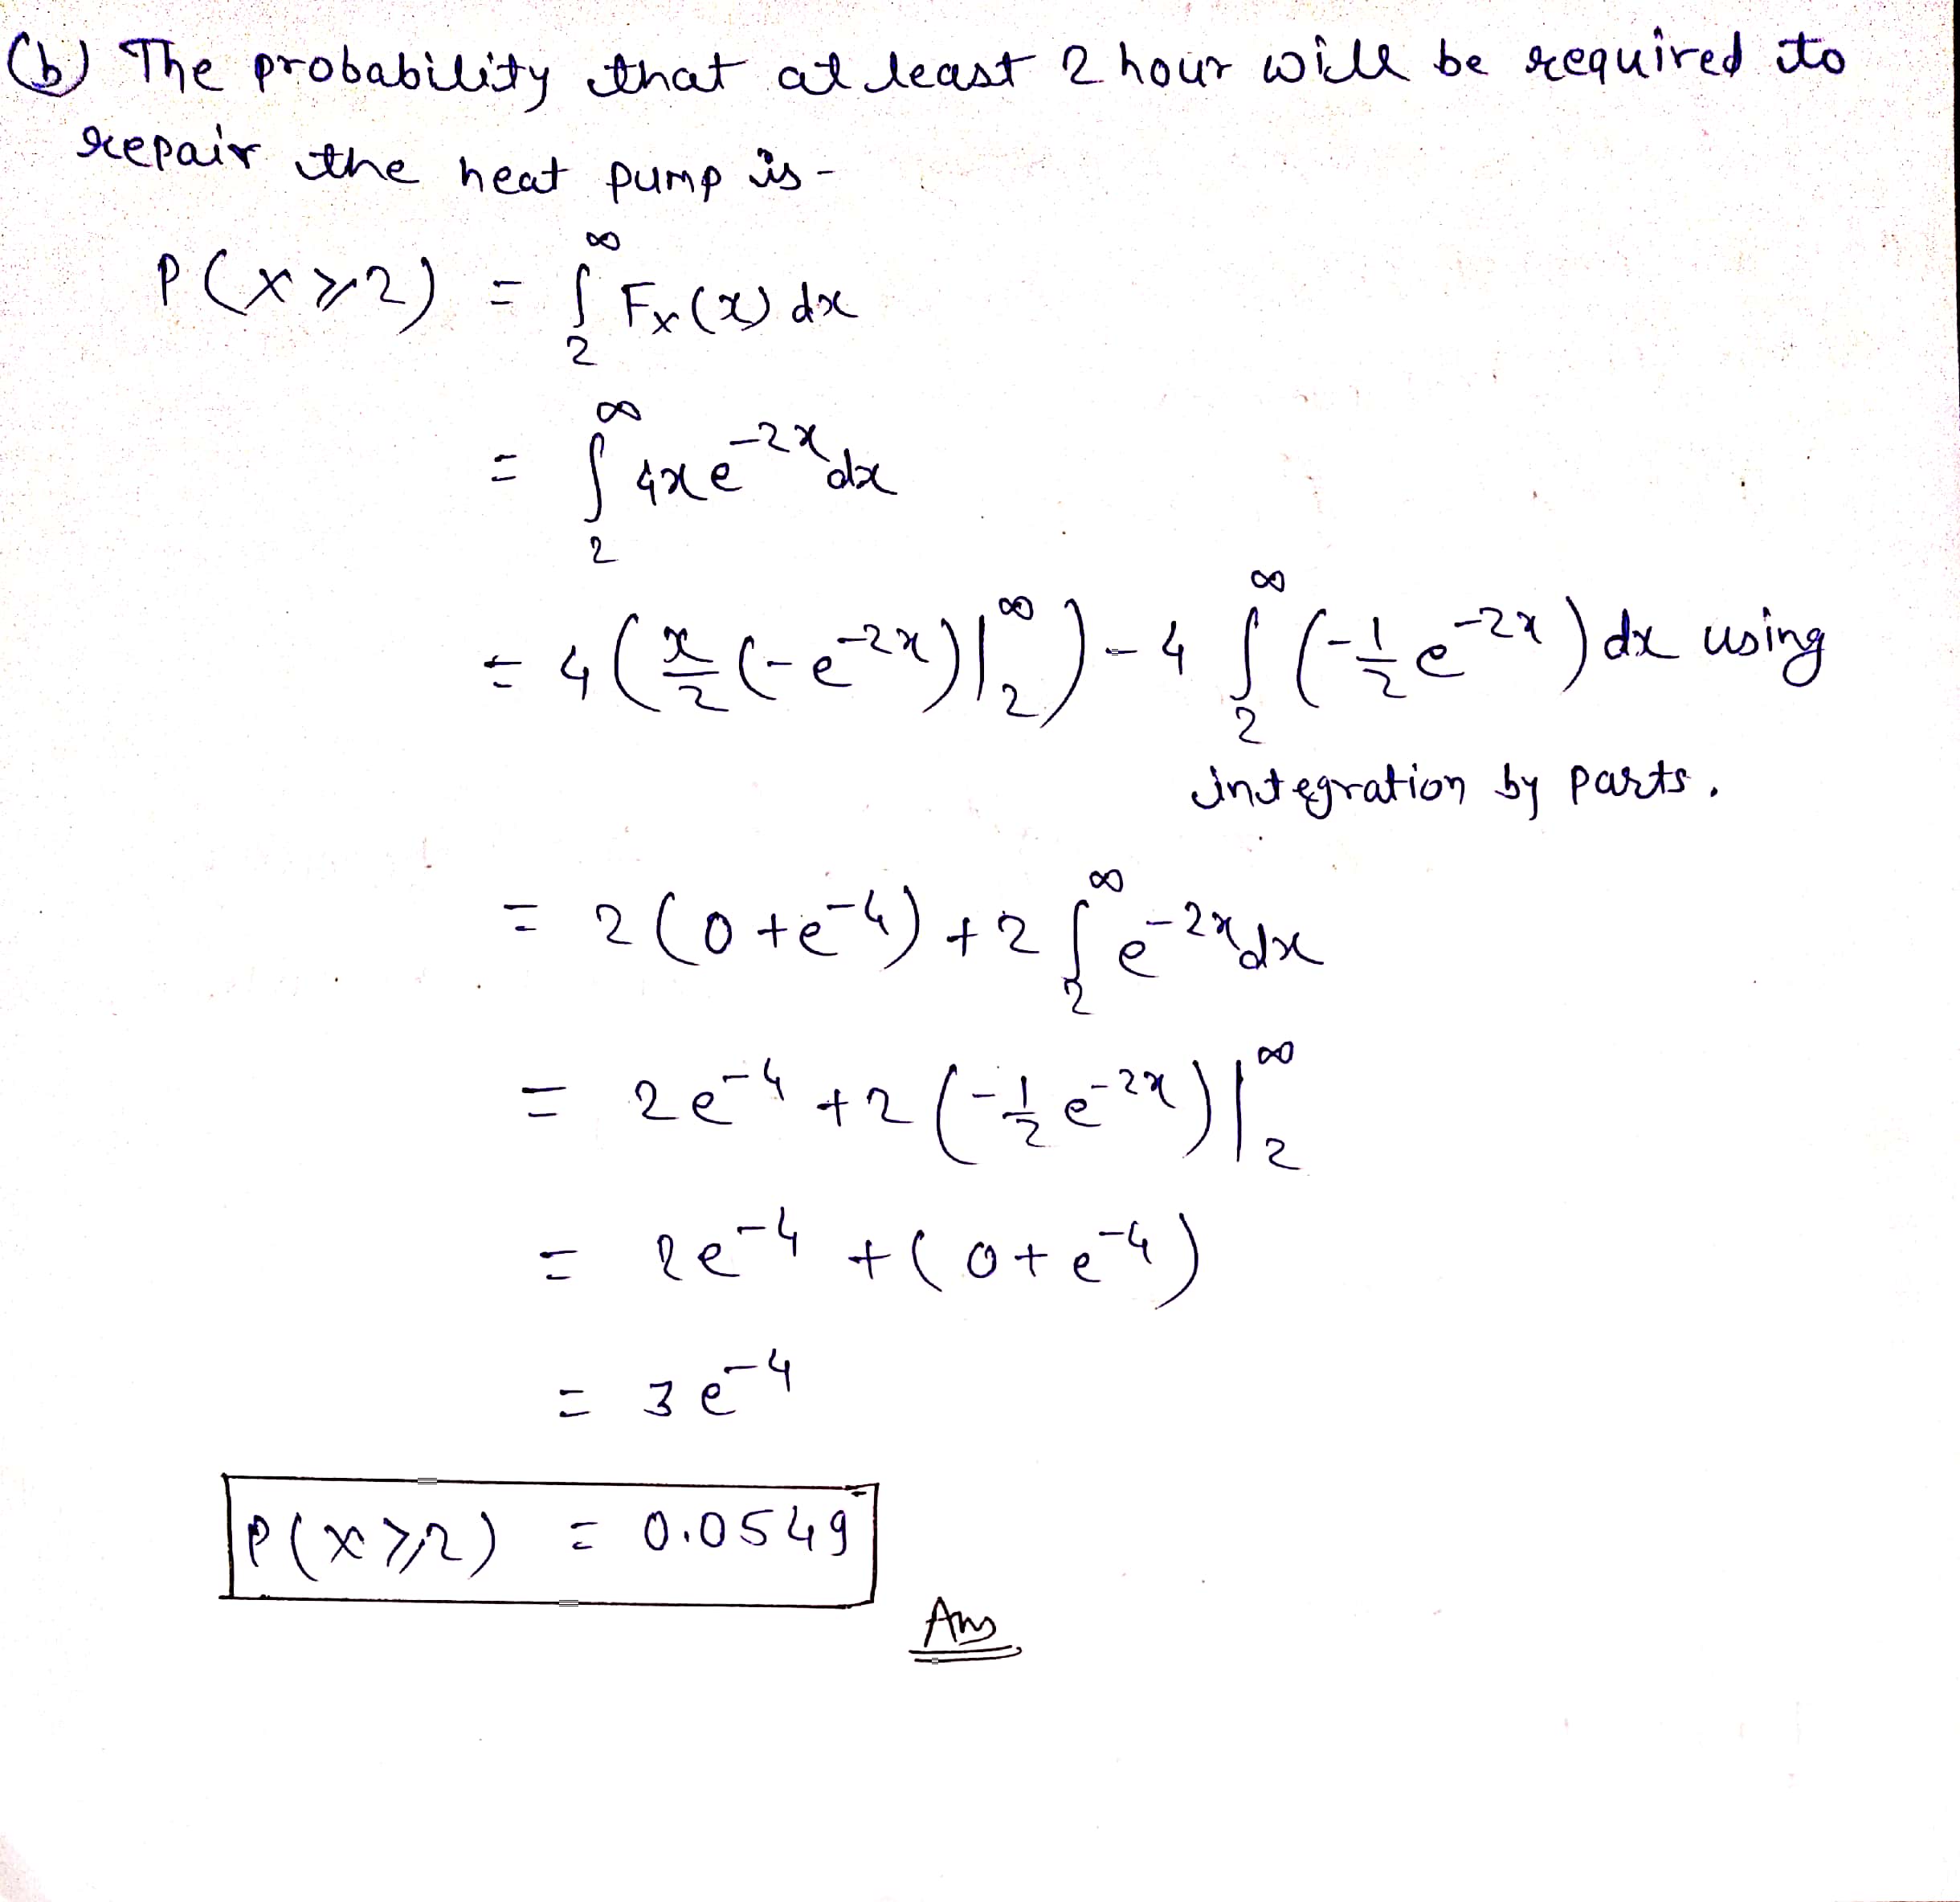 (b) The probability that at least 2 hour will be required to
repair the heat pump is-
P(X ≥ 2) = ∫₂^∞ Fx(x) dx
= ∫₂^∞ 4xe^{-2x} dx
= 4(x/2 (-e^{-2x})|₂^∞) - 4 ∫₂^∞ (-1/2 e^{-2x}) dx using
integration by parts.
= 2(0+e^{-4}) + 2 ∫₂^∞ e^{-2x} dx
= 2e^{-4} + 2(-1/2 e^{-2x})|₂^∞
= 2e^{-4} + (0+e^{-4})
= 3e^{-4}
P(X ≥ 2) = 0.0549
Ans